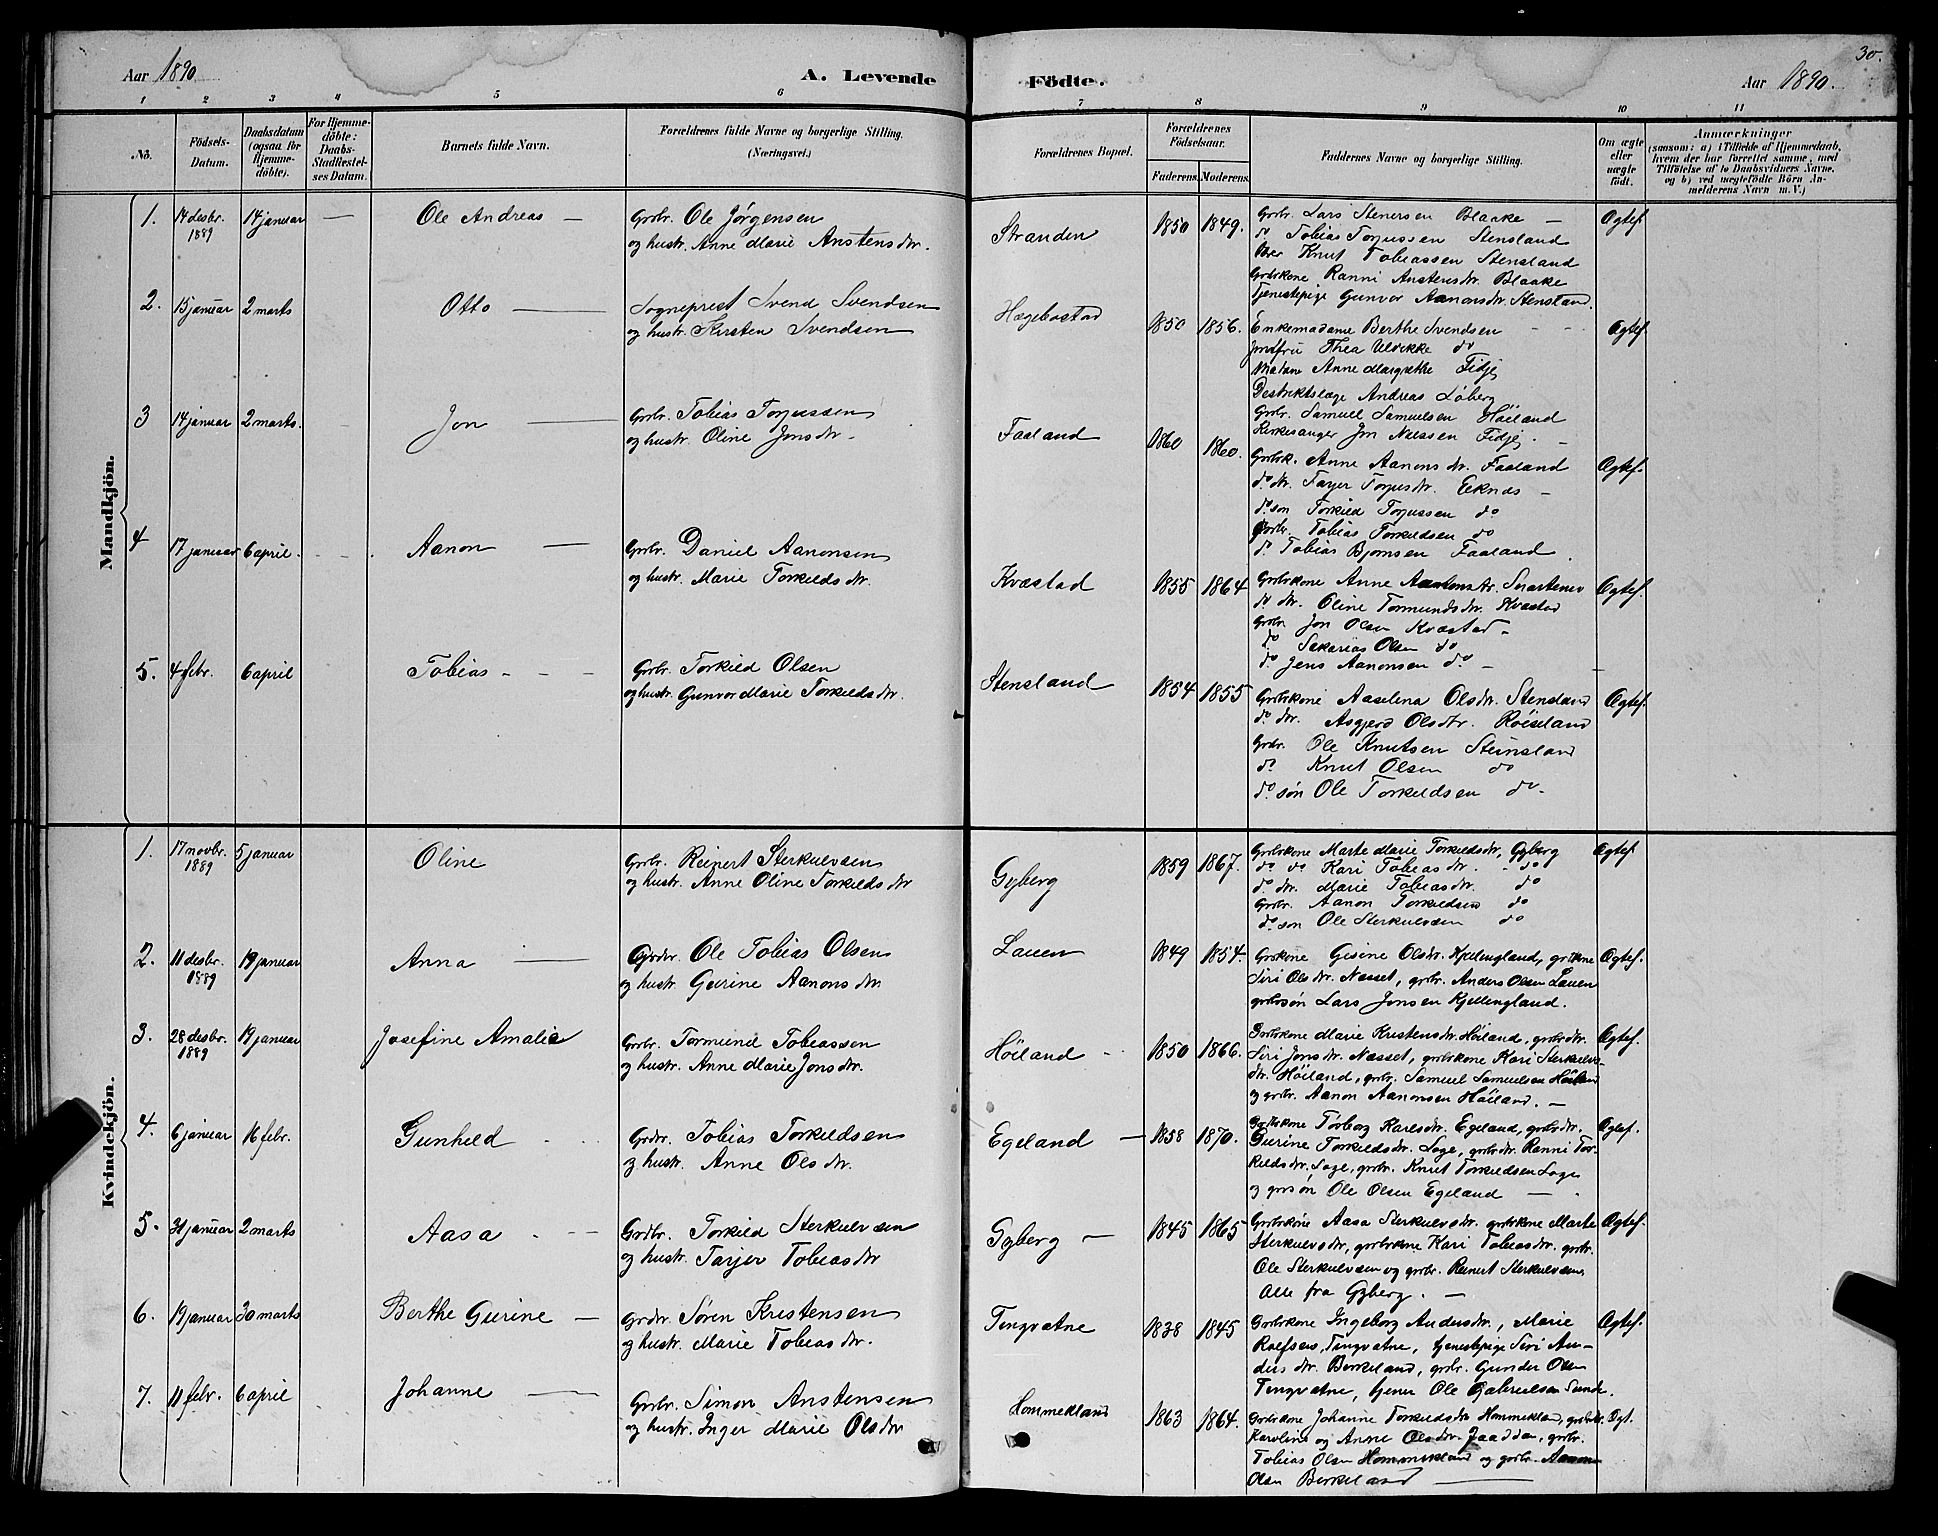 30.
Aar 1890. A. Levende Födte. Aar 1890.
1 2 3 4 5 6 7 8 9 10 11
No.
Födsels-Datum.
Daabsdatum (ogsaa for Hjemmedöbte).
For Hjemmedöbte: Daabs-Stadfæstelses Datum.
Barnets fulde Navn.
Forældrenes fulde Navne og borgerlige Stilling.
(Næringsvei.)
Forældrenes Bopæl.
Forældrenes Födselsaar.
Faderens. Moderens.
Faddernes Navne og borgerlige Stilling.
Om ægte eller uægte födt.
Anmærkninger
(saasom: a) i Tilfælde af Hjemmedaab, hvem der har forrettet samme, med Tilföielse af to Daabsvidners Navne, og b) ved uægtefödte Börn Anmelderens Navn m. V.)
Mandkjön.
1. 14 desbr. 1889 14 januar — Ole Andreas —
Grbr. Ole Jørgensen
og hustr. Anne Marie Anstensdtr.
Stranden 1850 1849.
Grbr. Lars Stenersen Blaake —
do Tobias Torjussen Stensland
Knut Tobiassen Stensland
Grbrkone Ranni Anstensdtr. Blaake
Tjenestepige Gunvor Aanonsdtr. Stensland
Ægtef.
2. 15 januar 2 marts Otto —
Sogneprest Svend Svendsen
og hustr. Kirsten Svendsen
Hægebostad 1850 1856.
Enkemadame Berthe Svendsen
Jomfru Thea Ulrikke do
Madam Anne Margrethe Fidje
Destriktslæge Andreas Løberg
Grbr. Samuel Samuelsen Höiland
Kirkesanger Jon Nilssen Fidje. —
Ægtef.
3 14 januar 2 marts. Jon —
Grbr. Tobias Torjussen
og hustr. Oline Jonsdtr.
Faaland 1860 1860.
Grbrk. Anne Aanonsdtr. Faaland
do dtr. Tarjer Torjusdtr. Eeknes —
do son Torkild Torjussen do
Grbr. Tobias Torkildsen do
do Tobias Bjornsen Faaland
Ægtef.
4 17 januar 6 april. Aanon —
Grbr. Daniel Aanonsen
og hustr. Marie Torkildsdtr.
Kvæstad 1855 1864
Grbrkone Anne Snartemo
do dtr. Oline Tormundsdtr. Kvæstad
Grbr. Jon Olsen Kvæstad —
do Sakarias Olsen do
do Jens Aanonsen do —
Ægtef.
5. 4 febr. 6 april Tobias - - -
Grbr. Torkild Olsen
og hustr. Gunvor Marie Torkildsdtr.
Stensland 1854 1855
Grbrkone Aaselina Olsdtr. Stensland
do dtr. Asgjerd Olsdtr. Röiseland
Grbr. Ole Knutsen Steinsland
do Knut Olsen do
do sön Ole Torkildsen do —
Ægtef.
Kvindekjön.
1. 17 novbr. 1889 5 januar Oline
Grbr. Reinert Sterkulvsen
og hustr. Anne Oline Torkildsdtr
Gyberg 1859 1867.
Grbrkone Marte Marie Torkildsdtr, Gyberg
do do Kari Tobiasdtr. do
do dtr. Marie Tobiasdtr. do
Grbr. Aanon Torkildsen do
do son Ole Sterkulvsen do
Ægtef
2. 11 desbr. 1889 19 januar Anna —
Grbr. Ole Tobias Olsen
og hustr. Gurine Aanonsdtr.
Lauen 1849 1854.
Grbrkone Gesine Olsdtr. Kjellingland, grbrkone
Siri Olsdtr. Nasset, grbr. Anders Olsen Lauen
grbrsön Lars Jonsen Kjellingland.
Ægtef.
3. 28 desbr. 1889 19 januar Josefine Amalie
Grbr. Tormund Tobiassen
og hustr. Anne Marie Jonsdtr.
Höiland - 1850 1866.
Grbrkone Marie Kristensdtr. Höiland, grbrdtr.
Siri Jonsdtr. Nasset, grbrkone Kari Sterkulvs-
dtr. Höiland, grbr. Samuel Samuelsen Höiland
og grbr. Aanon Aanonsen Höiland. —
Ægtef.
4. 6 januar 16 febr. Gunhild
Grbr. Tobias Torkildsen
og hustr. Anne Olsdtr.
Egeland — 1858 1870.
Grbrkone Torborg Karlsdtr. Egeland, grbrdtr.
Gurine Torkildsdtr. Loge, grbrdtr. Ranni Tor-
kildsdtr. Loge, grbr. Knut Torkildsen Loge
og grbrsön Ole Olsen Egeland —
Ægtef.
5. 31 januar 2 marts Aasa
Grdbr. Torkild Sterkulvsen
og hustr. Tarjer Tobiasdtr
Gyberg — 1845 1865
Grbrkone Aasa Sterkulvsdtr. grbrkone Marte
Sterkulvsdtr, grbrkone Kari Tobiasdtr. grbr.
Ole Sterkulvsen og grbr. Reinert Sterkulvsen,
Alle fra Gyberg. —
Ægtef.
6. 19 januar 30 marts Berthe Gurine —
Grbr. Sören Kristensen
og hustr. Marie Tobiasdtr.
Tingvatne 1838 1845
Grbrkone Ingeborg Andersdtr., Marie
Rolfsen, Tingvatne, tjenestepige Siri An-
dersdtr. Birkeland, grbr. Gunder Olsen
Tingvatne, tjener Ole Gabrielsen Sunde.
Ægtef.
7. 11 febr. 6 april Johanne —
Grbr. Simon Anstensen
og hustr. Inger Marie Olsdtr
Hommekland 1863 1864.
Grbrkone Johanne Torkildsdtr Hommekland, grbrdtr.
Karoline og Anne Olsdtr. Jaaddan, grbr.
Tobias Olsen Hommekland og grbr. Aanon
Olsen Birkeland —
Ægt.